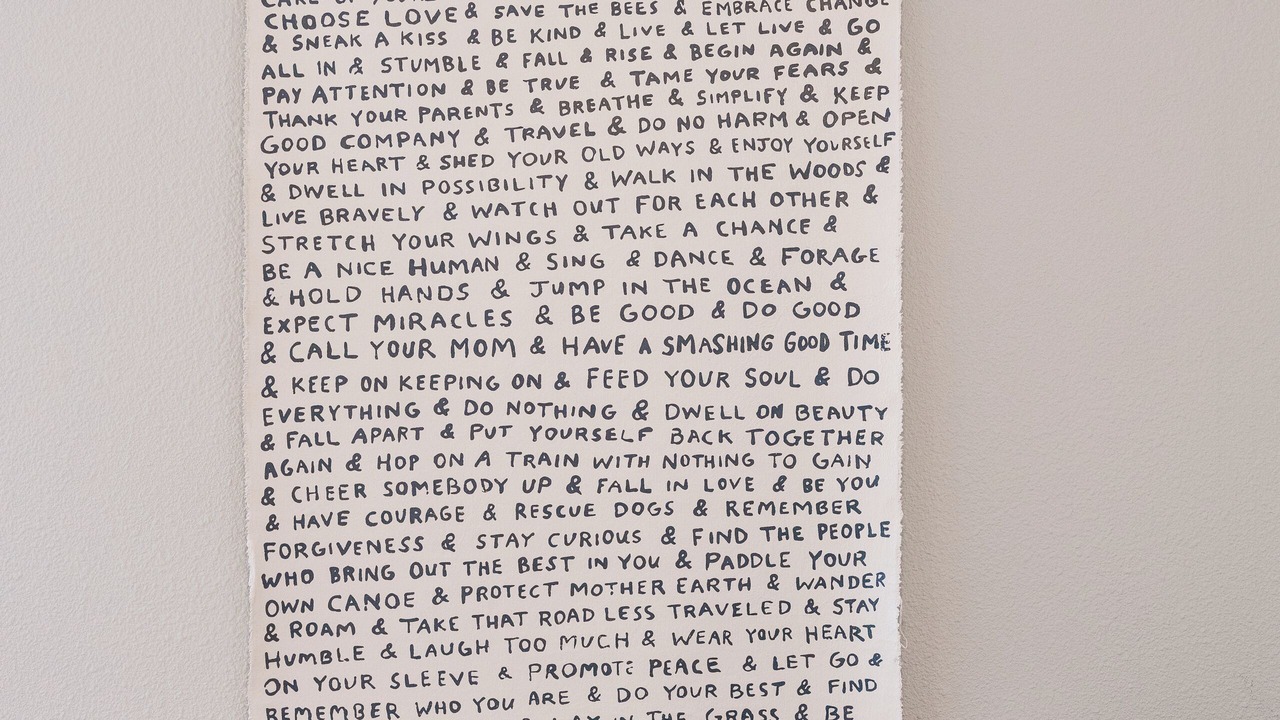 CHOOSE LOVE & SAVE THE BEES & EMBRACE CHANGE
& SNEAK A KISS & BE KIND & LIVE & LET LIVE & GO
ALL IN & STUMBLE & FALL & RISE & BEGIN AGAIN &
PAY ATTENTION & BE TRUE & TAME YOUR FEARS &
THANK YOUR PARENTS & BREATHE & SIMPLIFY & KEEP
GOOD COMPANY & TRAVEL & DO NO HARM & OPEN
YOUR HEART & SHED YOUR OLD WAYS & ENJOY YOURSELF
& DWELL IN POSSIBILITY & WALK IN THE WOODS &
LIVE BRAVELY & WATCH OUT FOR EACH OTHER &
STRETCH YOUR WINGS & TAKE A CHANCE &
BE A NICE HUMAN & SING & DANCE & FORAGE
& HOLD HANDS & JUMP IN THE OCEAN &
EXPECT MIRACLES & BE GOOD & DO GOOD
& CALL YOUR MOM & HAVE A SMASHING GOOD TIME
& KEEP ON KEEPING ON & FEED YOUR SOUL & DO
EVERYTHING & DO NOTHING & DWELL ON BEAUTY
& FALL APART & PUT YOURSELF BACK TOGETHER
AGAIN & HOP ON A TRAIN WITH NOTHING TO GAIN
& CHEER SOMEBODY UP & FALL IN LOVE & BE YOU
& HAVE COURAGE & RESCUE DOGS & REMEMBER
FORGIVENESS & STAY CURIOUS & FIND THE PEOPLE
WHO BRING OUT THE BEST IN YOU & PADDLE YOUR
OWN CANOE & PROTECT MOTHER EARTH & WANDER
& ROAM & TAKE THAT ROAD LESS TRAVELED & STAY
HUMBLE & LAUGH TOO MUCH & WEAR YOUR HEART
ON YOUR SLEEVE & PROMOTE PEACE & LET GO &
REMEMBER WHO YOU ARE & DO YOUR BEST & FIND
IN THE GRASS & BE